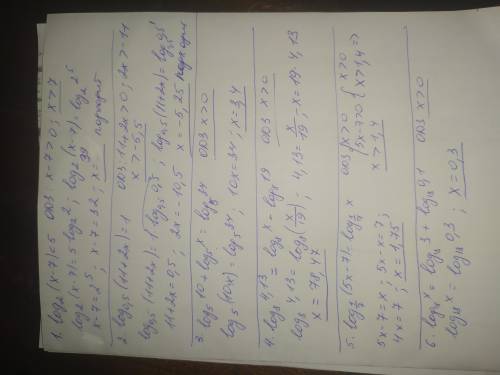 1. log₂(x-7)=5 ОДЗ: x-7>0; x>7
log₂(x-7)=5log₂2; log₂(x-7)=log₂2⁵
x-7=2⁵; x-7=32; x=39 подходит
2. log₀,₅(11+2x)=1 ОДЗ: 11+2x>0; 2x>-11
x>-5,5
log₀,₅(11+2x)=1log₀,₅0,5; log₀,₅(11+2x)=log₀,₅0,5¹
11+2x=0,5; 2x=-10,5 x=-5,25 подходит
3. log₅10+log₅x=log₅34 ОДЗ x>0
log₅(10x)=log₅34; 10x=34; x=3,4
4. log₈4,13=log₈x-log₈19 ОДЗ x>0
log₈4,13=log₈(x/19); 4,13=x/19; x=19·4,13
x=78,47
5. (5x-7)= x ОДЗ {x>0 {x>0
5x-7>0 x>1,4 =>
5x-7=x; 5x-x=7; x>1,4
4x=7; x=1,75
6. x= 3+ 0,1 ОДЗ x>0
x= 0,3; x=0,3